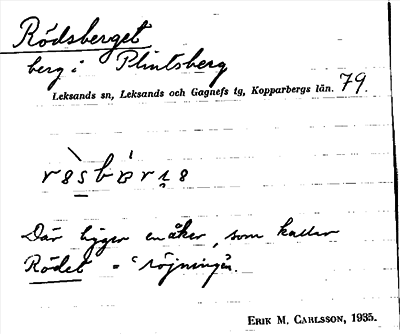 Rödsberget
berg i Plintsberg
Leksands sn, Leksands och Gagnefs tg, Kopparbergs län. 79.
Där ligger en åker, som kallas
Rödet = röjningen.
ERIK M. CARLSSON, 1935.